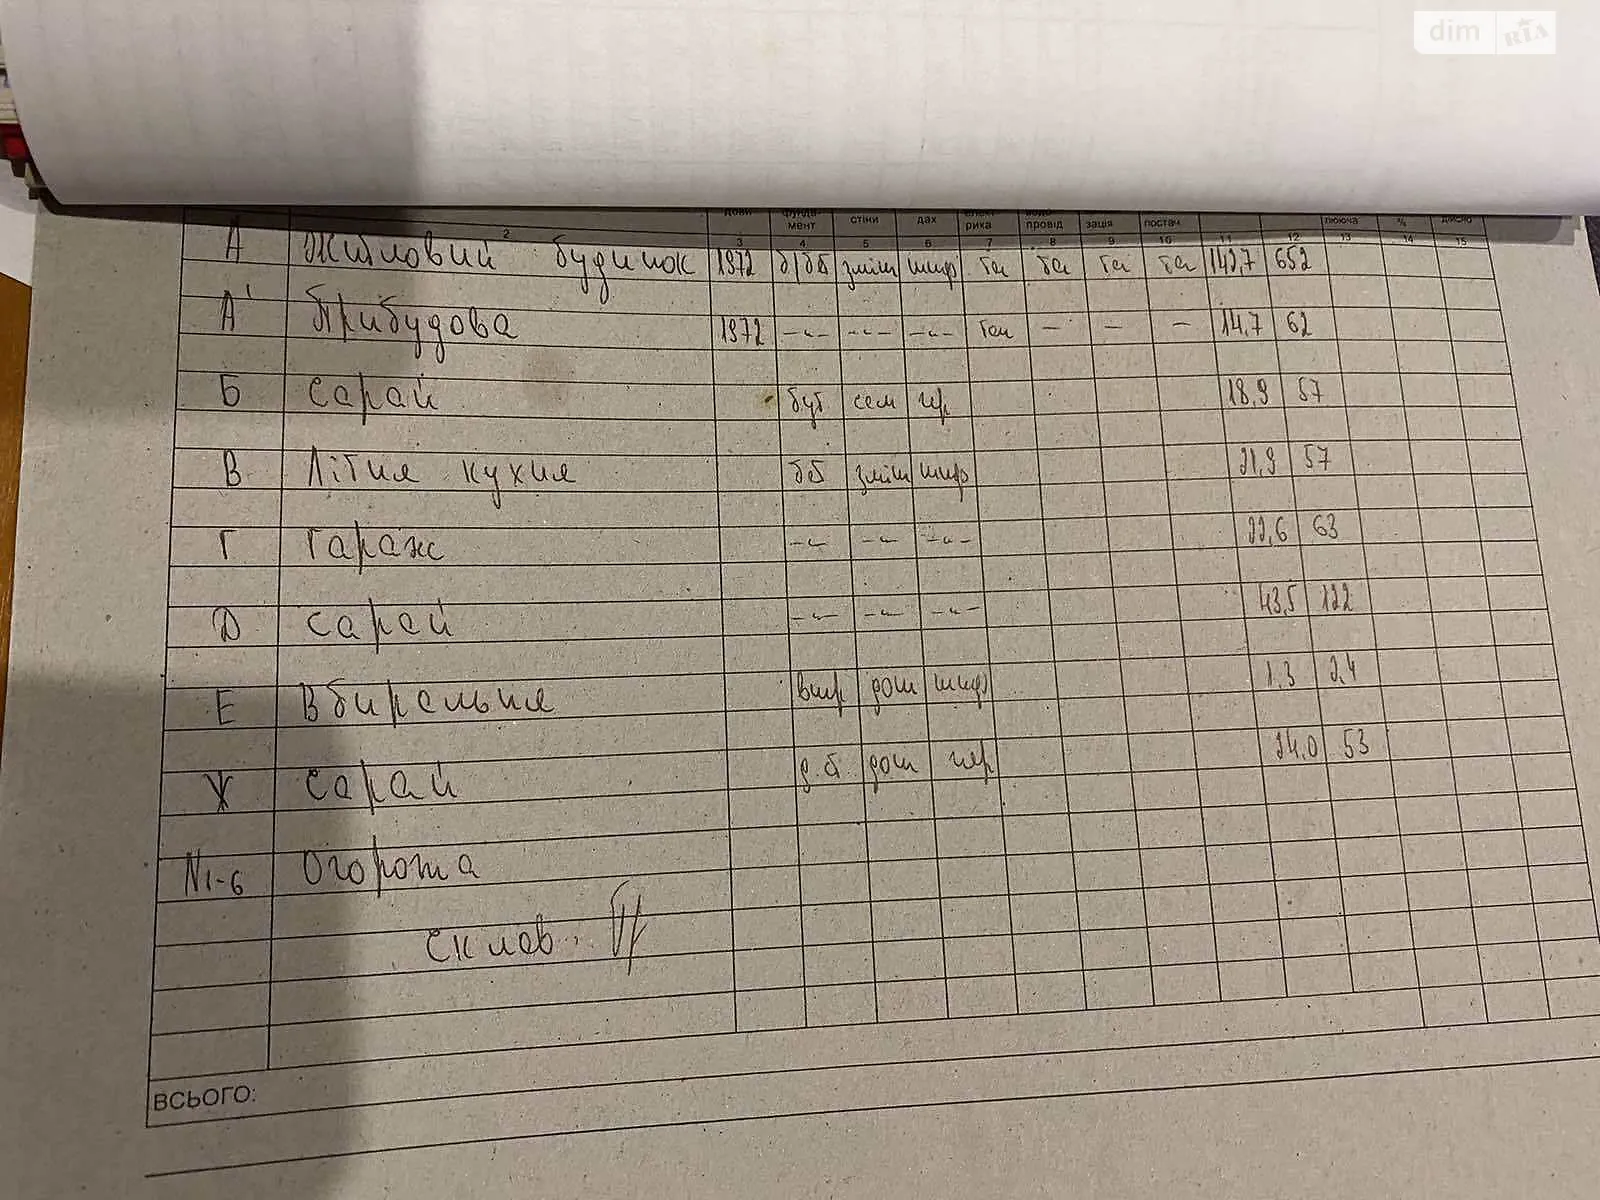 dim RIA
дови фунда- стіни дах елект водо- зація постач лююча % дійсно
мент рика провід
2 3 4 5 6 7 8 9 10 11 12 13 14 15
А Житловий будинок 1972 б/бб зміш шиф га га га 142,7 652
А' Прибудова 1972 -"- -"- -"- — — — 14,7 62
Б Сарай бут сем чер 18,9 57
В Літня кухня бб зміш шиф 21,9 57
Г Гараж -"- -"- -"- 22,6 63
Д Сарай -"- -"- -"- 43,5 122
Е Вбиральня вигр дош шиф 1,3 2,4
Ж Сарай д.б дош чер 24,0 53
N1-6 Огорожа
склав.
ВСЬОГО: